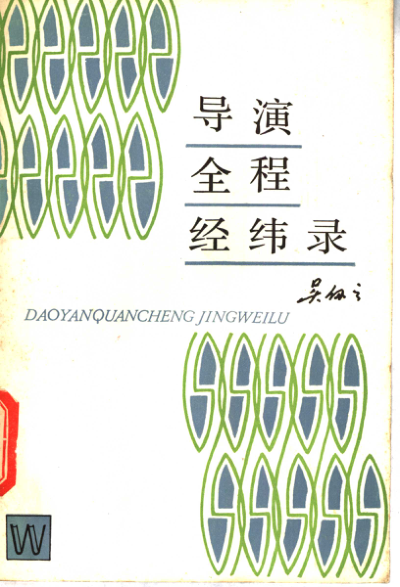 导演
全程
经纬录
吴仞之
DAOYANQUANCHENG JINGWEILU
W